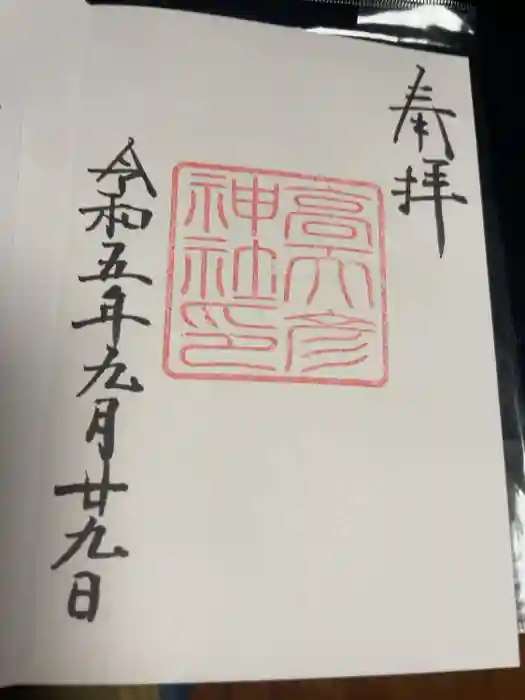 奉拝
高天彦
神社印
令和五年九月廿九日